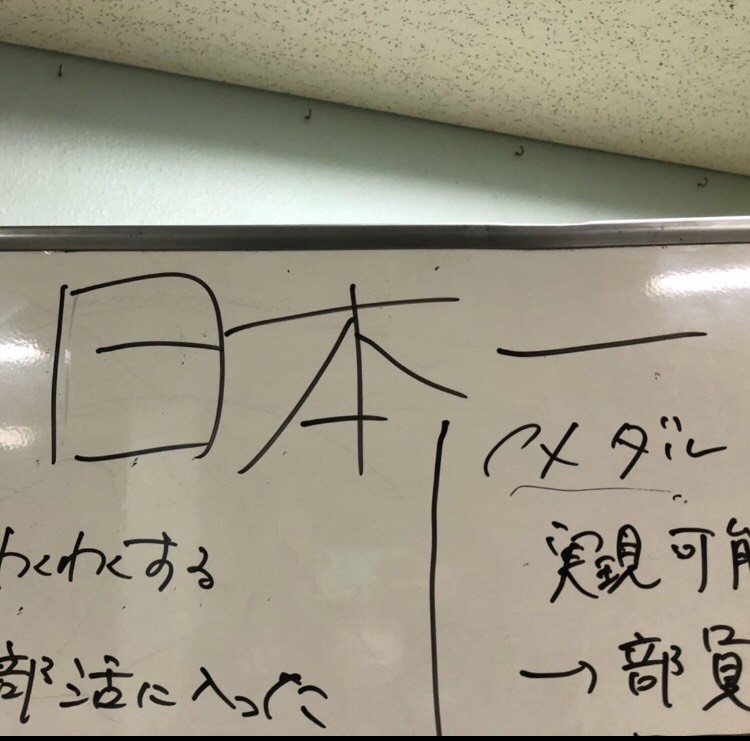 日本一
わくわくする
部活に入った
メダル
実現可能
→部員